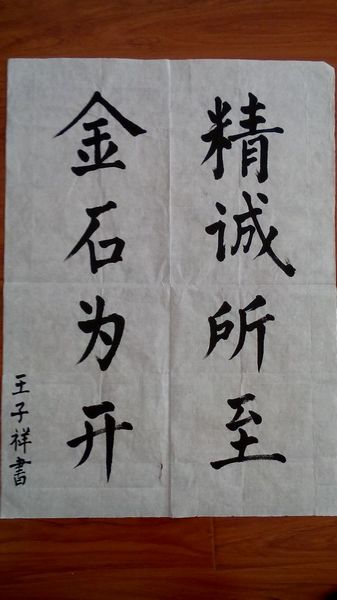 精诚所至
金石为开
王子祥書